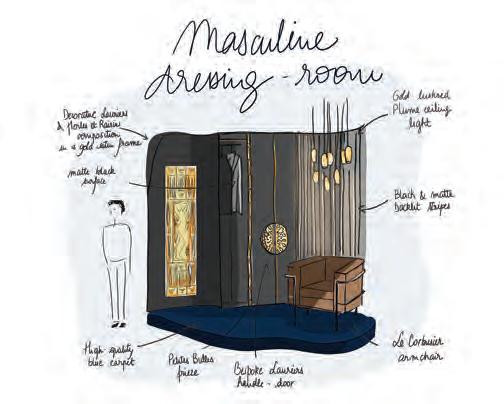 Masculine
dressing-room
Decorative Lauriers
& Merles et Raisins
composition
in a gold satin frame
matte black
surface
Gold lustred
Plume ceiling
light
Black & matte
backlit stripes
High quality
blue carpet
Petites Bulles
piece
Bespoke Lauriers
handle-door
Le Corbusier
armchair